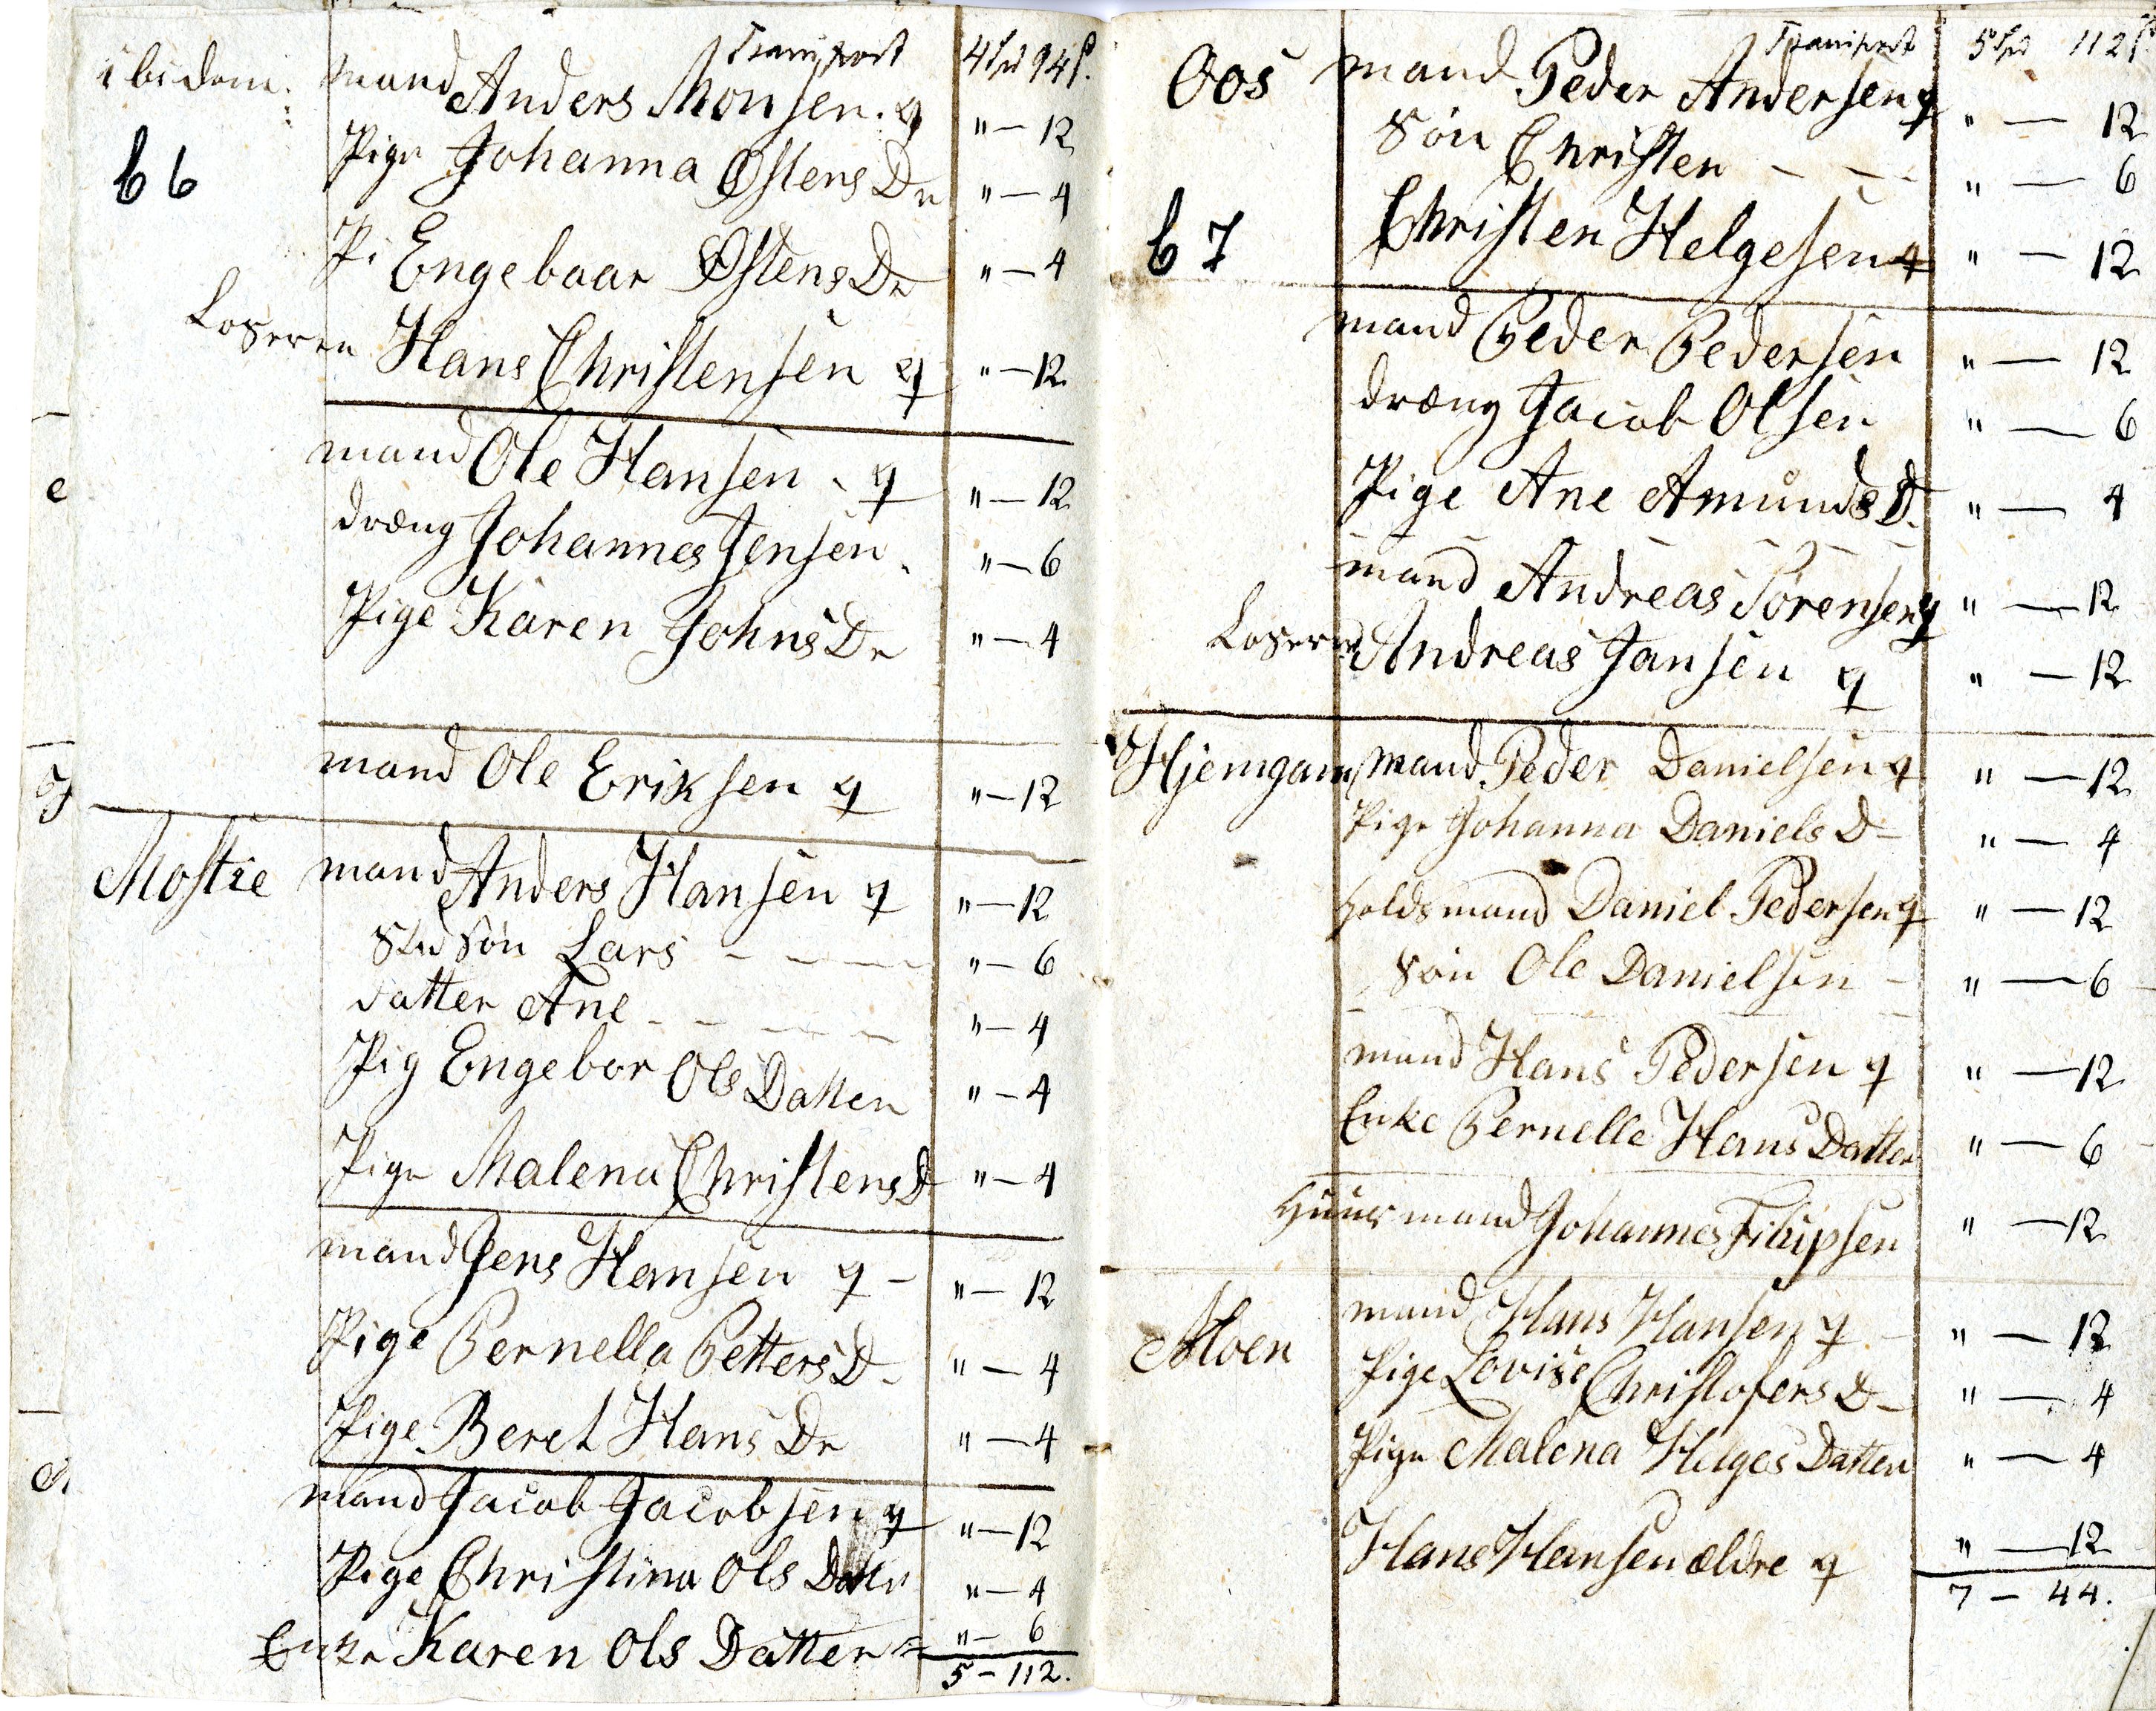 Transport 4 spd 94 s.
ibidem. mand Anders Monsen. q " — 12
Pige Johanna Østens Dr " — 4
66
Pi Engebaar Østens Dr " — 4
Loseren Hans Christensen q " — 12
mand Ole Hansen. q " — 12
dræng Johannes Jensen. " — 6
Pige Karen Johns Dr " — 4
mand Ole Eriksen q " — 12
Mostre mand Anders Hansen q " — 12
Sted Søn Lars - - - " — 6
datter Ane - - - - " — 4
Pig Engebor Ols Datter " — 4
Pige Malena Christens D " — 4
mand Jens Hansen q - " — 12
Pige Pernella Petters D - " — 4
Pige Beret Hans Dr " — 4
mand Jacob Jacobsen q " — 12
Pige Christina Ols Datter " — 4
Enke Karen Ols Datter = " — 6
5 - 112.
Transport 5 spd 112 s
Oos mand Peder Andersen q " — 12
Søn Christen - - - " — 6
67 Christen Helgesen q " — 12
mand Peder Pedersen " — 12
dræng Jacob Olsen " — 6
Pige Ane Amunds D. " — 4
mand Andreas Sørensen q " — 12
Loseren Andreas Jansen q " — 12
Hjemgam mand Peder Danielsen q " — 12
Pige Johanna Daniels D - " — 4
Holdsmand Daniel Pedersen q " — 12
Søn Ole Danielsen - " — 6
mand Hans Pedersen q " — 12
Enke Pernelle Hans Datter " — 6
Huus mand Johannes Filipsen " — 12
Moen mand Hans Hansen q - " — 12
Pige Lovise Christofers D - " — 4
Pige Malena Helges Datter " — 4
Hans Hansen ældre q " — 12
7 - 44.